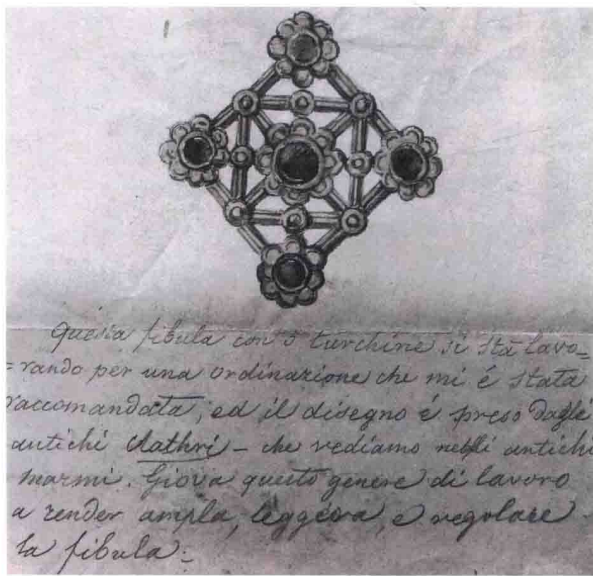 Questa fibula con 5 turchine si stà lavo=
=rando per una ordinazione che mi é stata
raccomandata; ed il disegno é preso dagli
antichi clathri - che vediamo negli antichi
marmi. Giova questo genere di lavoro
a render ampla, leggera, e regolare
la fibula.